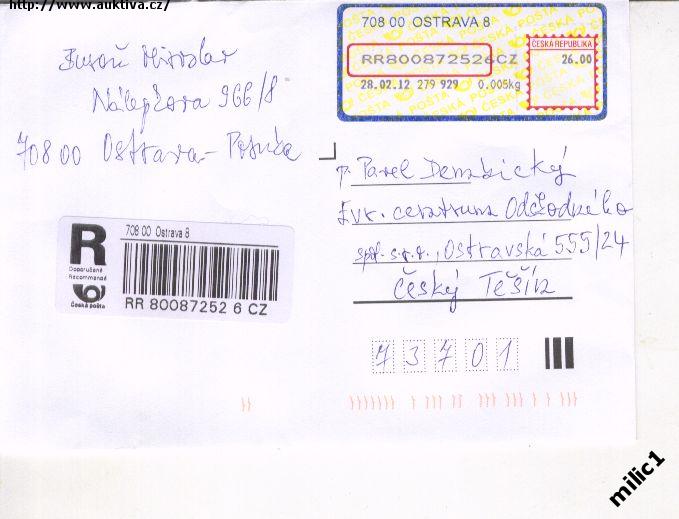 http://www.auktiva.cz/
Miroslav
Nálepkova 966/8
708 00 Ostrava-Poruba
708 00 OSTRAVA 8
RR800872526CZ
28.02.12 279 929 0.005kg
ČESKÁ REPUBLIKA
26.00
p. Pavel Dembický
Evr. centrum Odškodného
spol. s.r.o., Ostravská 555/24
Český Těšín
73701
R
Doporučeně
Recommandé
Česká pošta
708 00 Ostrava 8
RR 80087252 6 CZ
milic1